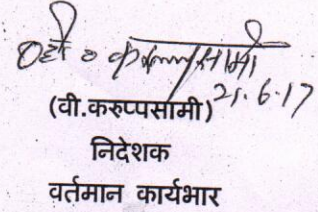 वी० करुप्पसामी
21.6.17
(वी.करुप्पसामी)
निदेशक
वर्तमान कार्यभार